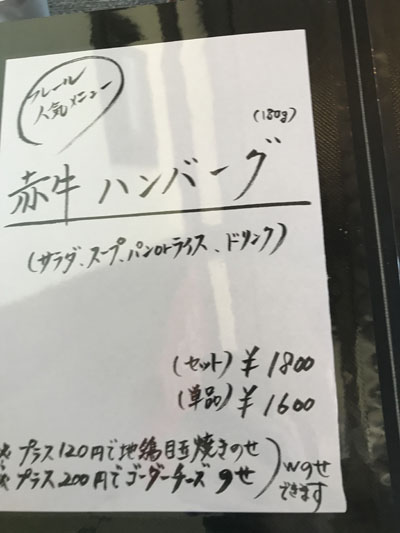 フレール
人気メニュー
(180g)
赤牛 ハンバーグ
(サラダ、スープ、パンorライス、ドリンク)
(セット) ¥1800
(単品) ¥1600
※ プラス120円で地鶏目玉焼きのせ
※ プラス200円でゴーダーチーズのせ
Wのせ
できます